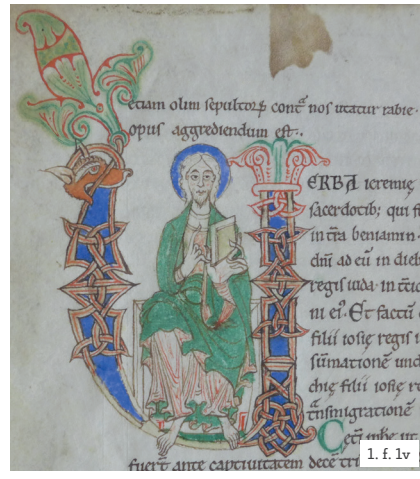 etiam olim sepultorꝝ contᵃ nos utatur rabie ·
opus aggrediendum est:.
VERBA ieremię
sacerdotib; qui
in tra beniamin ·
dnī ad eū in dieb
regis iuda · in
ni ei⁹. Et factū
filii iosię regis
sūmationē und
chię filii iosię
tᵃnsmigrationē
fuer̄t ante captiuitatem decē
1. f. 1v